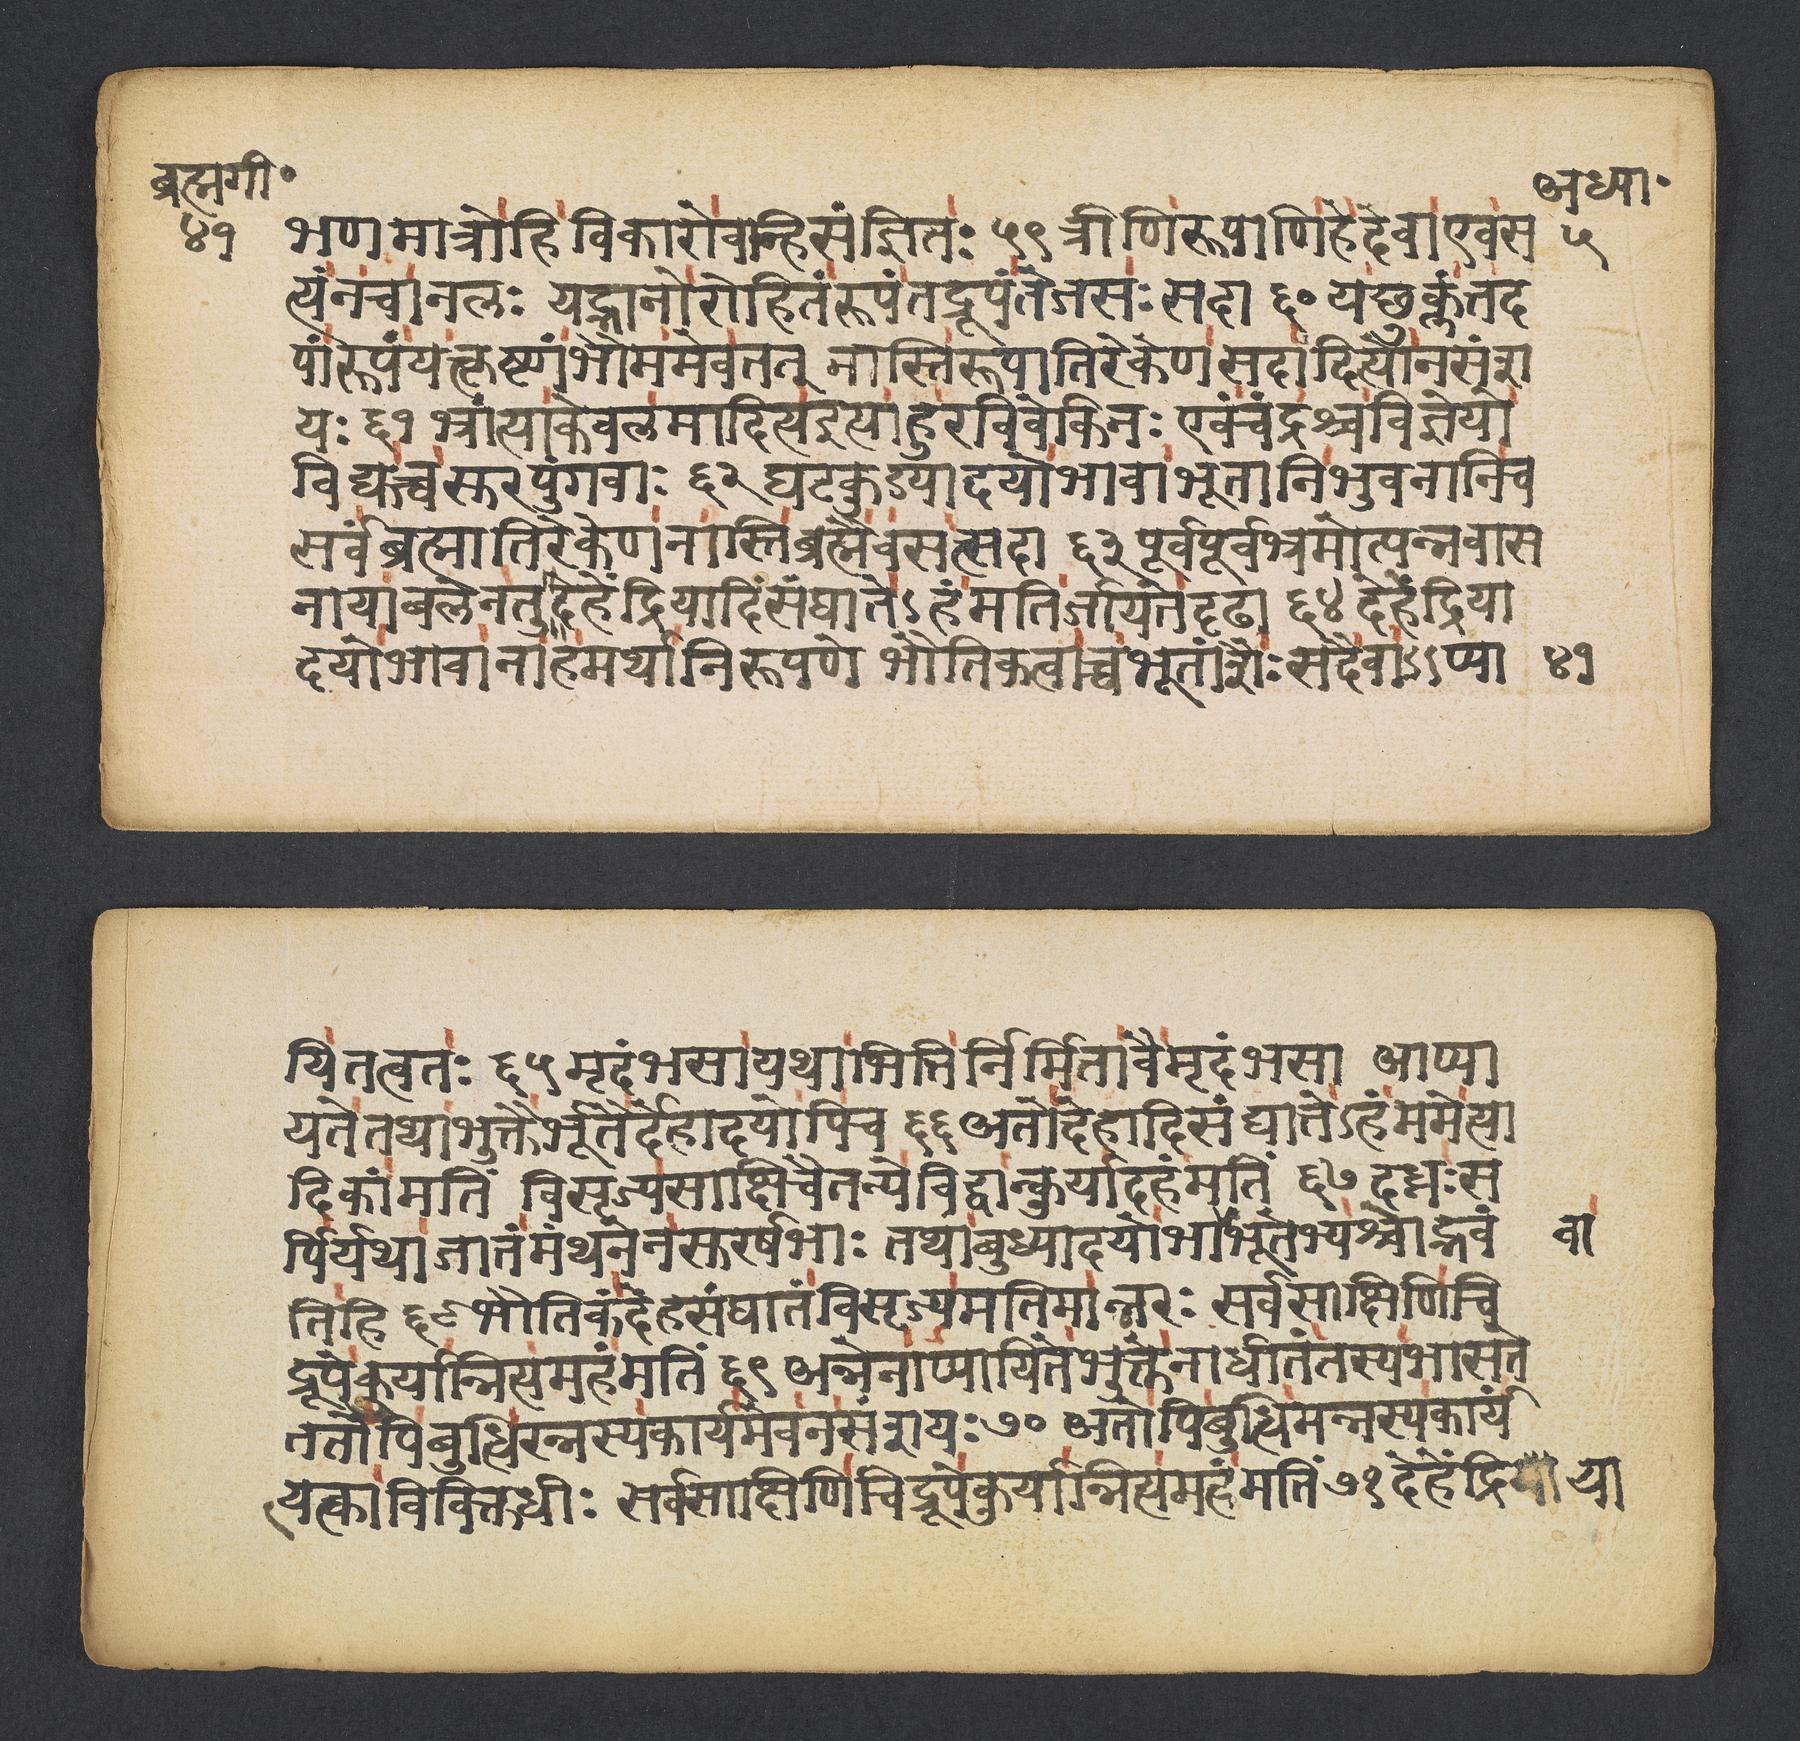 ब्रह्मगी॰
अध्या॰
४१
५
भणमात्रोहिविकारोवन्हिसंज्ञितः ५९ त्रीणिरूपाणिहेदेवाएवस
त्यंनचानलः यद्भानोरोहितंरूपंतद्रूपंतेजसः सदा ६० यछुक्लंतद
पांरूपंयत्कृष्णंभौममेवतत् नास्तिरूपातिरेकेणसदादित्योनसंश
यः ६१ भ्रांत्याकेवलमादित्यइत्याहुरविवेकिनः एवंचंद्रश्चविज्ञेयो
विद्युच्चसुरपुंगवाः ६२ घटकुड्यादयोभावाभूतानिभुवनानिच
सर्वंब्रह्मातिरेकेणनास्तिब्रह्मैवसत्सदा ६३ पूर्वपूर्वभ्रमोत्पन्नवास
नायाबलेनतुदेहेंद्रियादिसंघातेऽहंमतिर्जायतेदृढा ६४ देहेंद्रिया
दयोभावानाहमर्थानिरूपणे भौतिकत्वाच्चभूतांशैः सदैवाऽऽप्या
४१
यितत्वतः ६५ मृदंभसायथाभित्तिर्निर्मितावैमृदंभसा आप्या
यतेतथाभुक्तैर्भूतैर्देहादयोपिच ६६ अतोदेहादिसंघातेऽहंममेत्या
दिकांमतिं विसृज्यसाक्षिचैतन्येविद्वान्कुर्यादहंमतिं ६७ दध्नःस
र्पिर्यथाजातंमंथनेनसुरर्षभाः तथाबुध्यादयोभाभूतेभ्यश्चोद्भवं
वा
तिहि ६८ भौतिकंदेहसंघातंविसृज्यमतिमान्नरः सर्वसाक्षिणिचि
द्रूपेकुर्यान्नित्यमहंमतिं ६९ अन्नेनाप्यायितेभुक्तेनाधीतंतस्यभासते
ततोपिबुद्धिरन्नस्यकार्यमेवनसंशयः ७० अतोपिबुद्धिमन्नस्यकार्यं
त्यत्काविविक्तधीः सर्वसाक्षिणिचिद्रूपेकुर्यान्नित्यमहंमतिं ७१ देहेंद्रिया